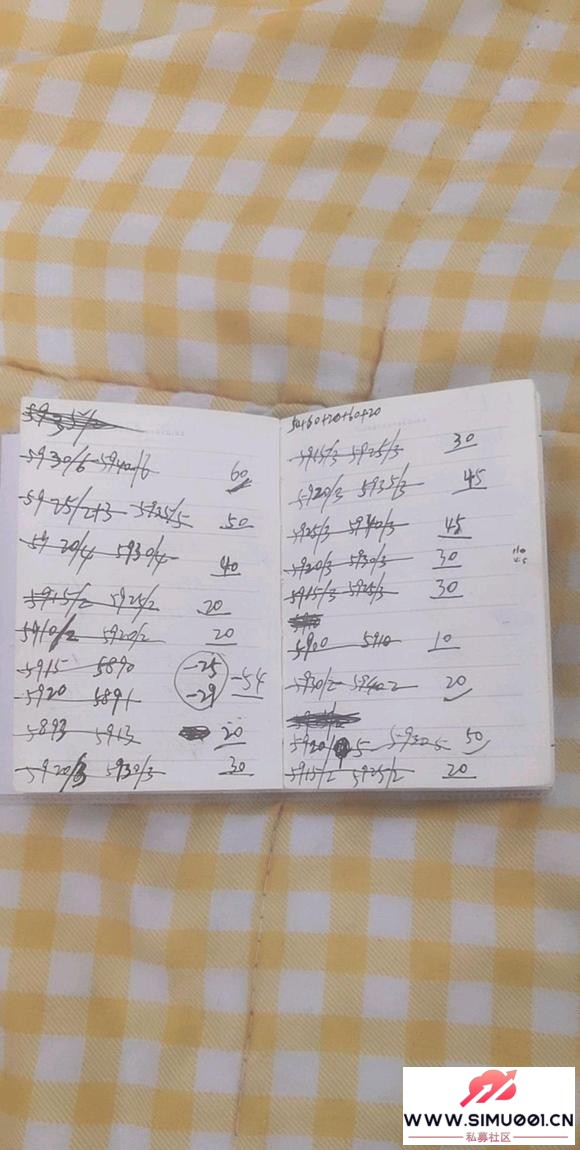 5930/6 5940/6 60
5925/2+3 5925/5 50
5920/4 5930/4 40
5915/2 5925/2 20
5910/2 5920/2 20
5915 5890 -25
-54
5920 5891 -29
5893 5913 20
5920/3 5930/3 30
50+60+20+60+20
5915/3 5925/3 30
5920/3 5935/3 45
5925/3 5940/3 45
5920/3 5930/3 30
5915/3 5925/3 30
5900 5910 10
5930/2 5940/2 20
5920/ 5 593 5 50
5915/2 5925/2 20
WWW.SIMU001.CN
私募社区